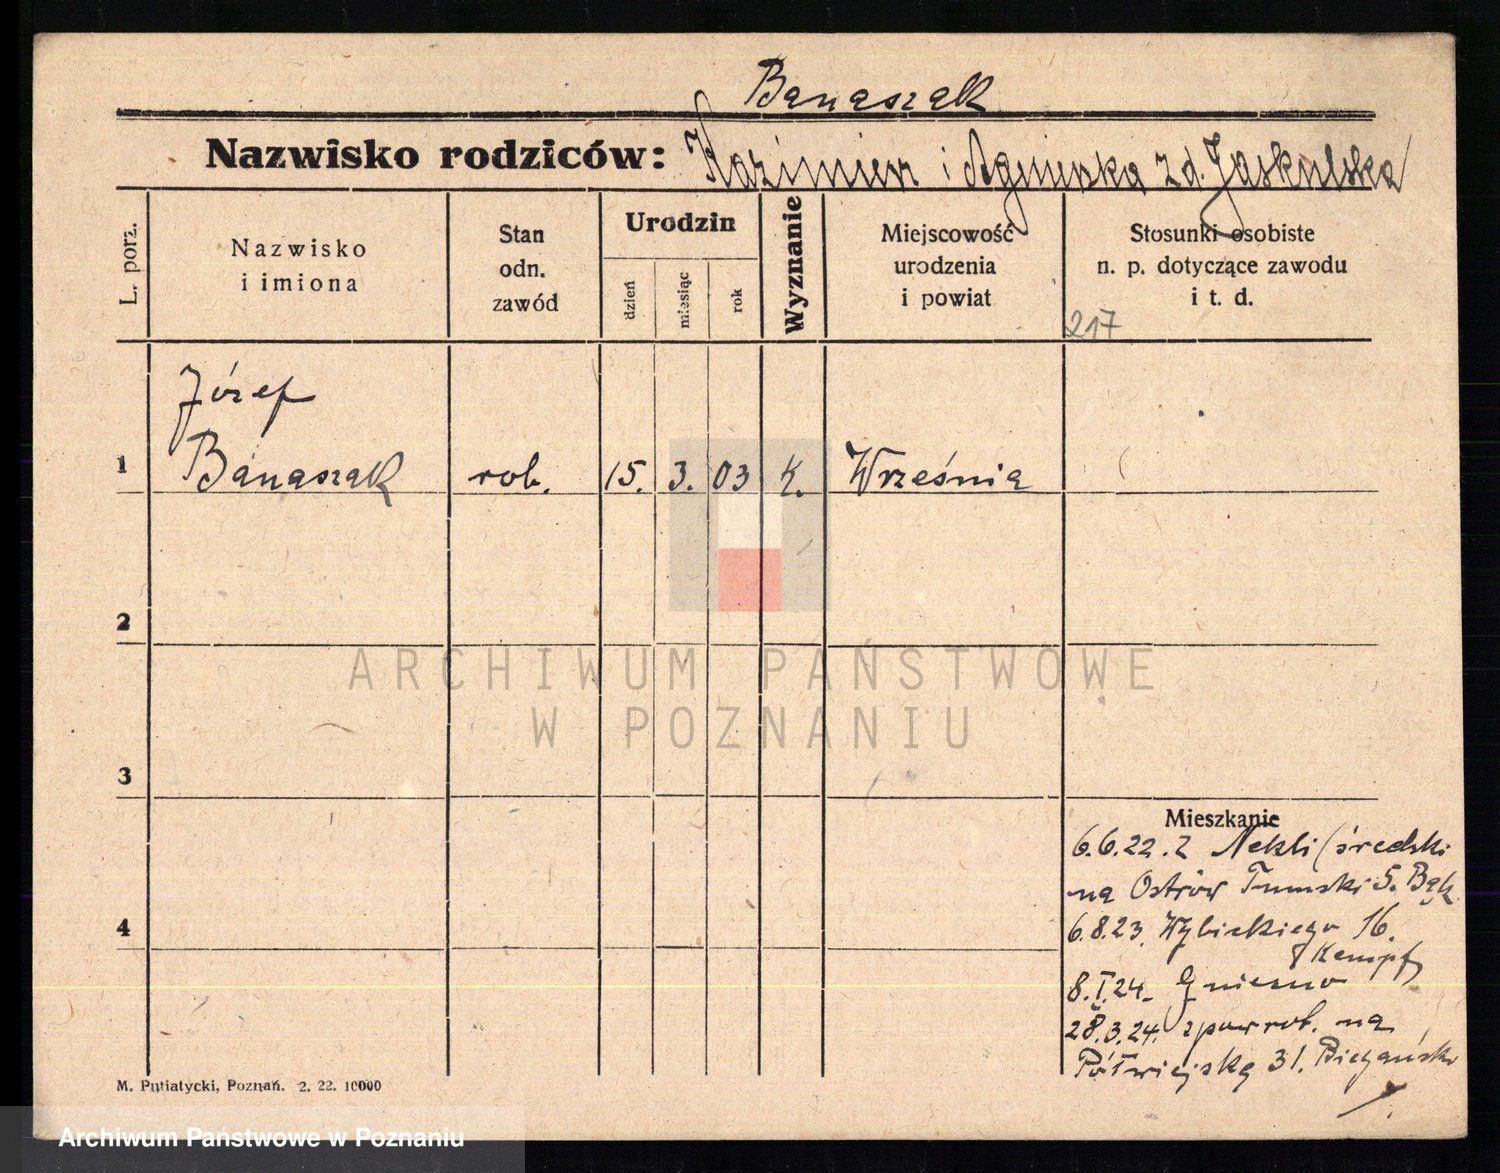 Banaszak
Nazwisko rodziców: Kazimierz i Agnieszka z d. Jaskulska
L. porz.
Nazwisko
i imiona
Stan
odn.
zawód
Urodzin
dzień
miesiąc
rok
Wyznanie
Miejscowość
urodzenia
i powiat
Stosunki osobiste
n. p. dotyczące zawodu
i t. d.
217
Józef
1 Banaszak rob. 15. 3. 03 K. Września
2
3
4
ARCHIWUM PAŃSTWOWE
W POZNANIU
Mieszkanie
6.6.22. z Nekli (średzki
na Ostrów Tumski 5. Bąk
6.8.23. Wybickiego 16.
Kempf
8.I.24. Gniezno
28.3.24. z powrot. na
Półwiejską 31. Biegańsk
M. Putiatycki, Poznań. 2. 22. 10000
Archiwum Państwowe w Poznaniu